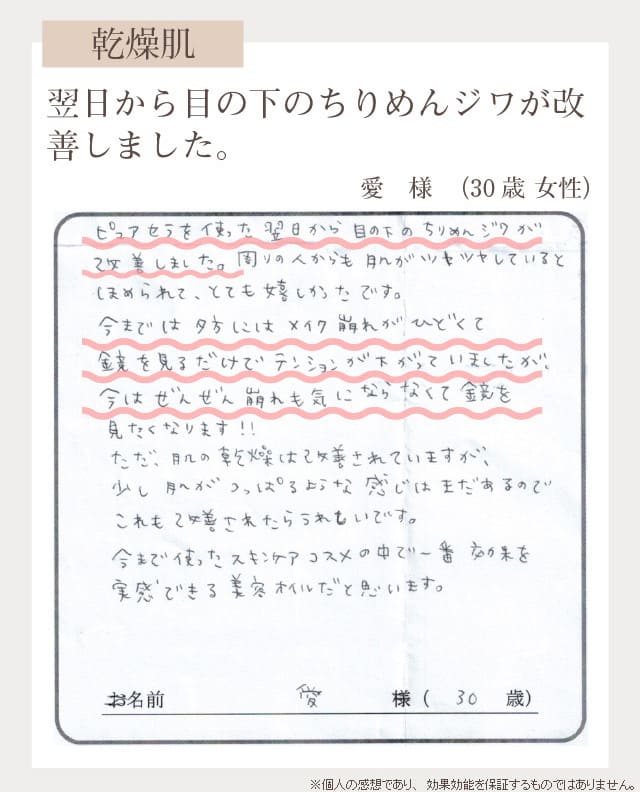 乾燥肌
翌日から目の下のちりめんジワが改
善しました。
愛 様 (30歳 女性)
ピュアセラを使った翌日から目の下のちりめんジワが
改善しました。周りの人からも肌がツヤツヤしていると
ほめられて、とても嬉しかったです。
今までは夕方にはメイク崩れがひどくて
鏡を見るだけでテンションが下がっていましたが、
今はぜんぜん崩れも気にならなくて鏡を
見たくなります!!
ただ、肌の乾燥は改善されていますが、
少し肌がつっぱるような感じはまだあるので
これも改善されたらうれしいです。
今まで使ったスキンケアコスメの中で一番効果を
実感できる美容オイルだと思います。
お名前 愛 様( 30 歳)
※個人の感想であり、効果効能を保証するものではありません。